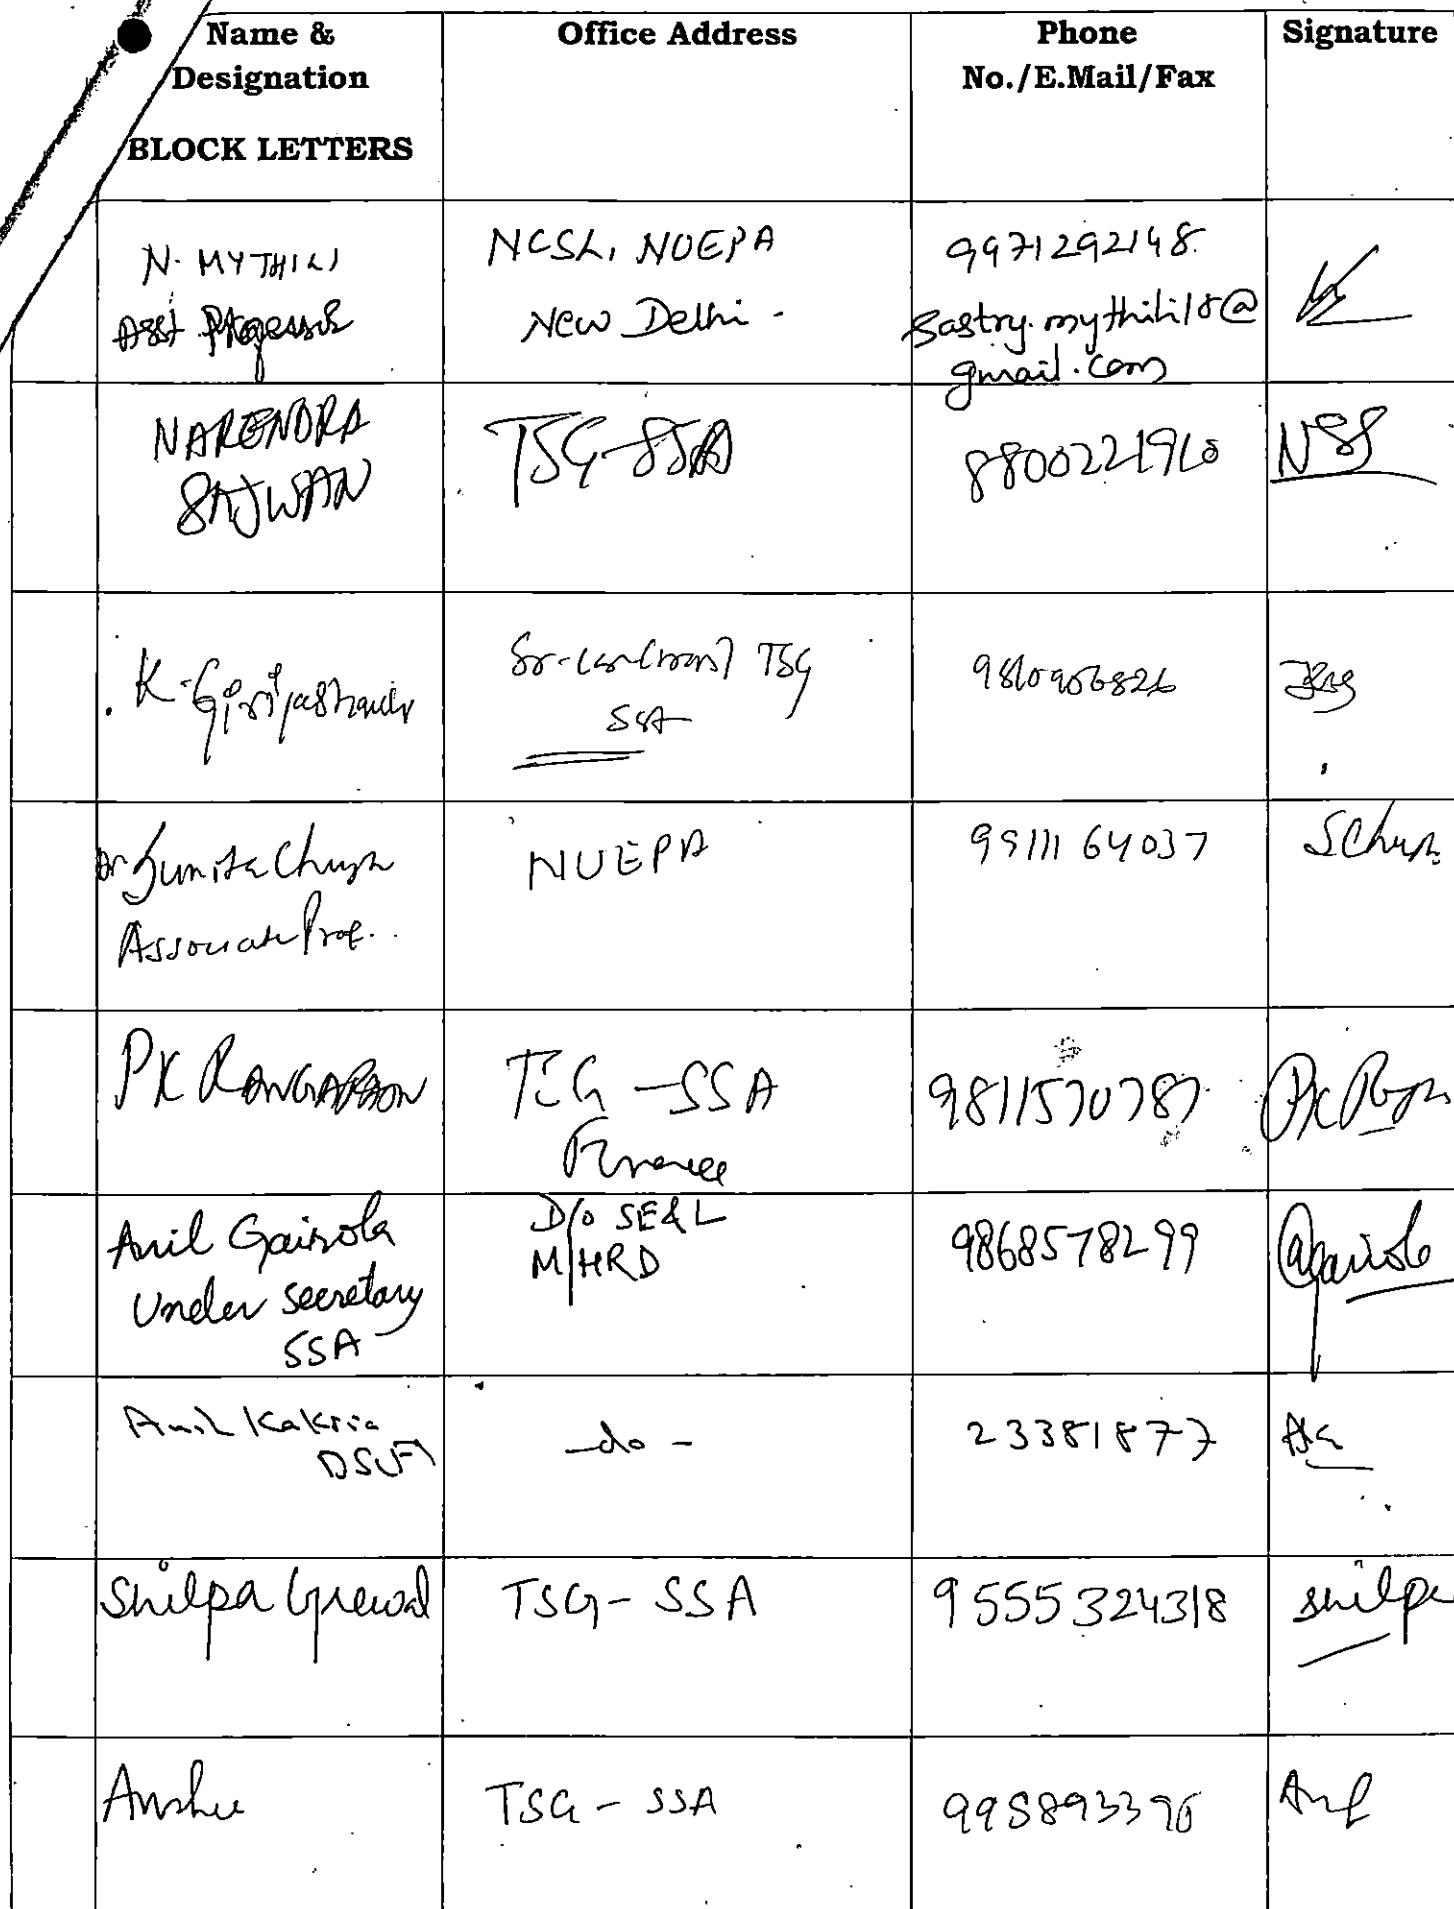 Name & Designation
BLOCK LETTERS
Office Address
Phone No./E.Mail/Fax
Signature
N. MYTHILI
Asst Professor
NCSL, NUEPA
New Delhi -
9971292148
sastry.mythili18@
gmail.com
NARENDRA
SAJWAN
TSG-SSA
NSS
K.
TSG
SSA
Dr Sunita Chugh
Associate Prof.
NUEPA
9911164037
SChugh
PK RANGARAJAN
TSG - SSA
Finance
9811570787
Anil Gairola
Under Secretary
SSA
D/o SE&L
M/HRD
9868578299
AGairola
Anil Kakria
-do-
23381877
Shilpa Grewal
TSG - SSA
9555324318
Shilpa
Anshu
TSG - SSA